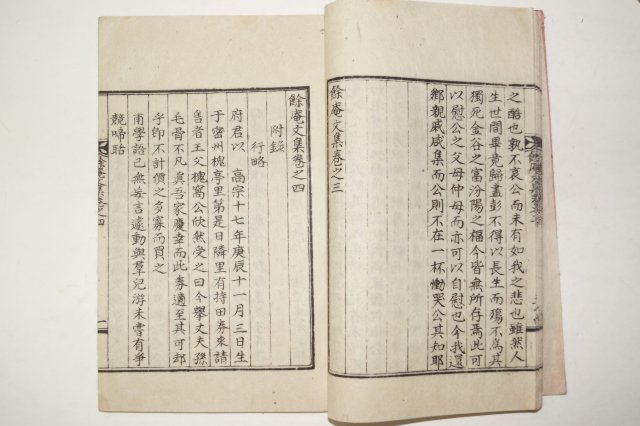 之酷也孰不哀公而未有如我之悲也雖然人
生世間畢竟歸盡彭不得以長生而殤不爲其
獨死金谷之富汾陽之福今皆無所存焉此可
以慰公之父母仲母而亦可以自慰也今我還
鄕親戚咸集而公則不在一杯慟哭公其知耶
餘庵文集卷之三
餘庵文集卷之四
附錄
行略
府君以 高宗十七年庚辰十一月三日生
于密州槐亭里第是日隣里有持田券來請
售者王父槐窩公欣然受之曰今擧丈夫孫
毛骨不凡眞吾家慶幸而此券適至其可却
乎卽不計價之多寡而買之
甫學語已無妄言遽動與羣兒游未嘗有爭
競啼詒